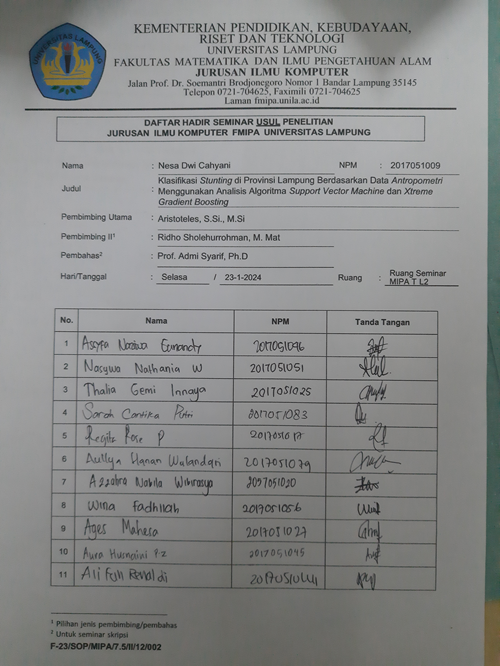 UNIVERSITAS LAMPUNG
KEMENTERIAN PENDIDIKAN, KEBUDAYAAN,
RISET DAN TEKNOLOGI
UNIVERSITAS LAMPUNG
FAKULTAS MATEMATIKA DAN ILMU PENGETAHUAN ALAM
JURUSAN ILMU KOMPUTER
Jalan Prof. Dr. Soemantri Brodjonegoro Nomor 1 Bandar Lampung 35145
Telepon 0721-704625, Faximili 0721-704625
Laman fmipa.unila.ac.id
DAFTAR HADIR SEMINAR USUL PENELITIAN
JURUSAN ILMU KOMPUTER FMIPA UNIVERSITAS LAMPUNG
Nama : Nesa Dwi Cahyani NPM : 2017051009
Judul : Klasifikasi Stunting di Provinsi Lampung Berdasarkan Data Antropometri
Menggunakan Analisis Algoritma Support Vector Machine dan Xtreme
Gradient Boosting
Pembimbing Utama : Aristoteles, S.Si., M.Si
Pembimbing II¹ : Ridho Sholehurrohman, M. Mat
Pembahas² : Prof. Admi Syarif, Ph.D
Hari/Tanggal : Selasa / 23-1-2024 Ruang : Ruang Seminar
MIPA T L2
No. Nama NPM Tanda Tangan
1 2017051096
2 Nasywa Nathania W 2017051051
3 Thalia Gemi Innaya 2017051025
4 Sarah Cantika Putri 2017051083
5 Rose P
6 Hanan Wulandari 2017051079
7 Azzahra Nabila
8 Wina Fadhilah 2017051056
9 Ages Mahesa 2017051027
10 Aura Husnaini 2017051045
11
¹ Pilihan jenis pembimbing/pembahas
² Untuk seminar skripsi
F-23/SOP/MIPA/7.5/II/12/002